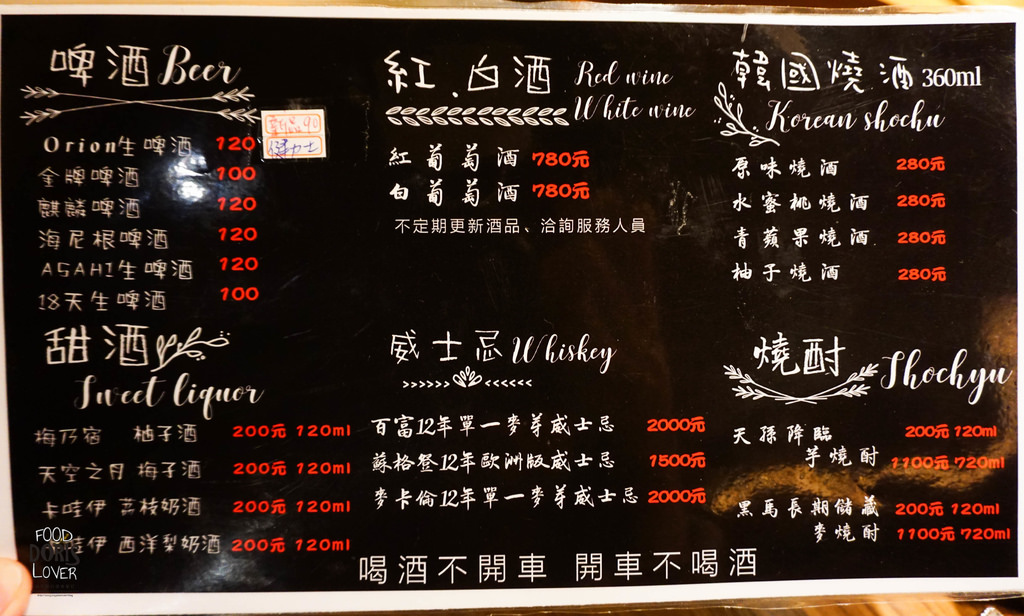 啤酒 Beer
Orion生啤酒 120
新品90
健力士
金牌啤酒 100
麒麟啤酒 120
海尼根啤酒 120
ASAHI生啤酒 120
18天生啤酒 100
甜酒
Sweet liquor
梅乃宿 柚子酒 200元 120ml
天空之月 梅子酒 200元 120ml
卡哇伊 荔枝奶酒 200元 120ml
哇伊 西洋梨奶酒 200元 120ml
紅.白酒 Red wine
White wine
紅葡萄酒 780元
白葡萄酒 780元
不定期更新酒品、洽詢服務人員
威士忌 Whiskey
百富12年單一麥芽威士忌 2000元
蘇格登12年歐洲版威士忌 1500元
麥卡倫12年單一麥芽威士忌 2000元
韓國燒酒 360ml
Korean shochu
原味燒酒 280元
水蜜桃燒酒 280元
青蘋果燒酒 280元
柚子燒酒 280元
燒酎 Shochyu
天孫降臨 200元 120ml
芋燒酎 1100元 720ml
黑馬長期儲藏 200元 120ml
麥燒酎 1100元 720ml
喝酒不開車 開車不喝酒
FOOD
DORIS
LOVER